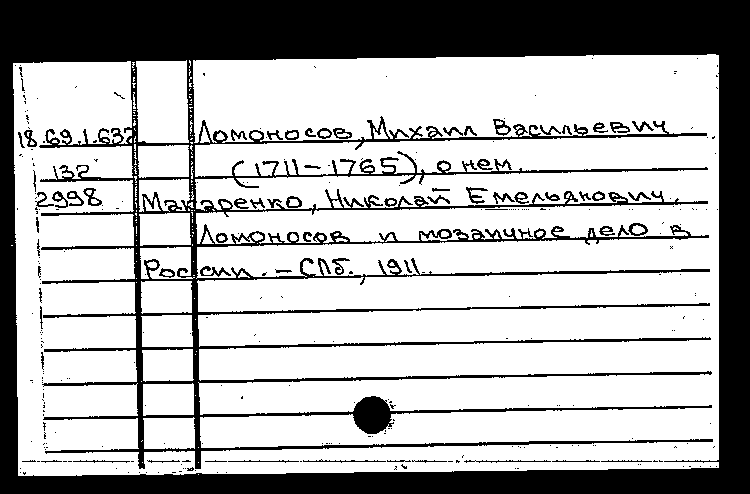 18.69.1.637 Ломоносов, Михаил Васильевич
132 (1711-1765), о нем.
2998 Макаренко, Николай Емельянович.
Ломоносов и мозаичное дело в
России. - СПб., 1911.